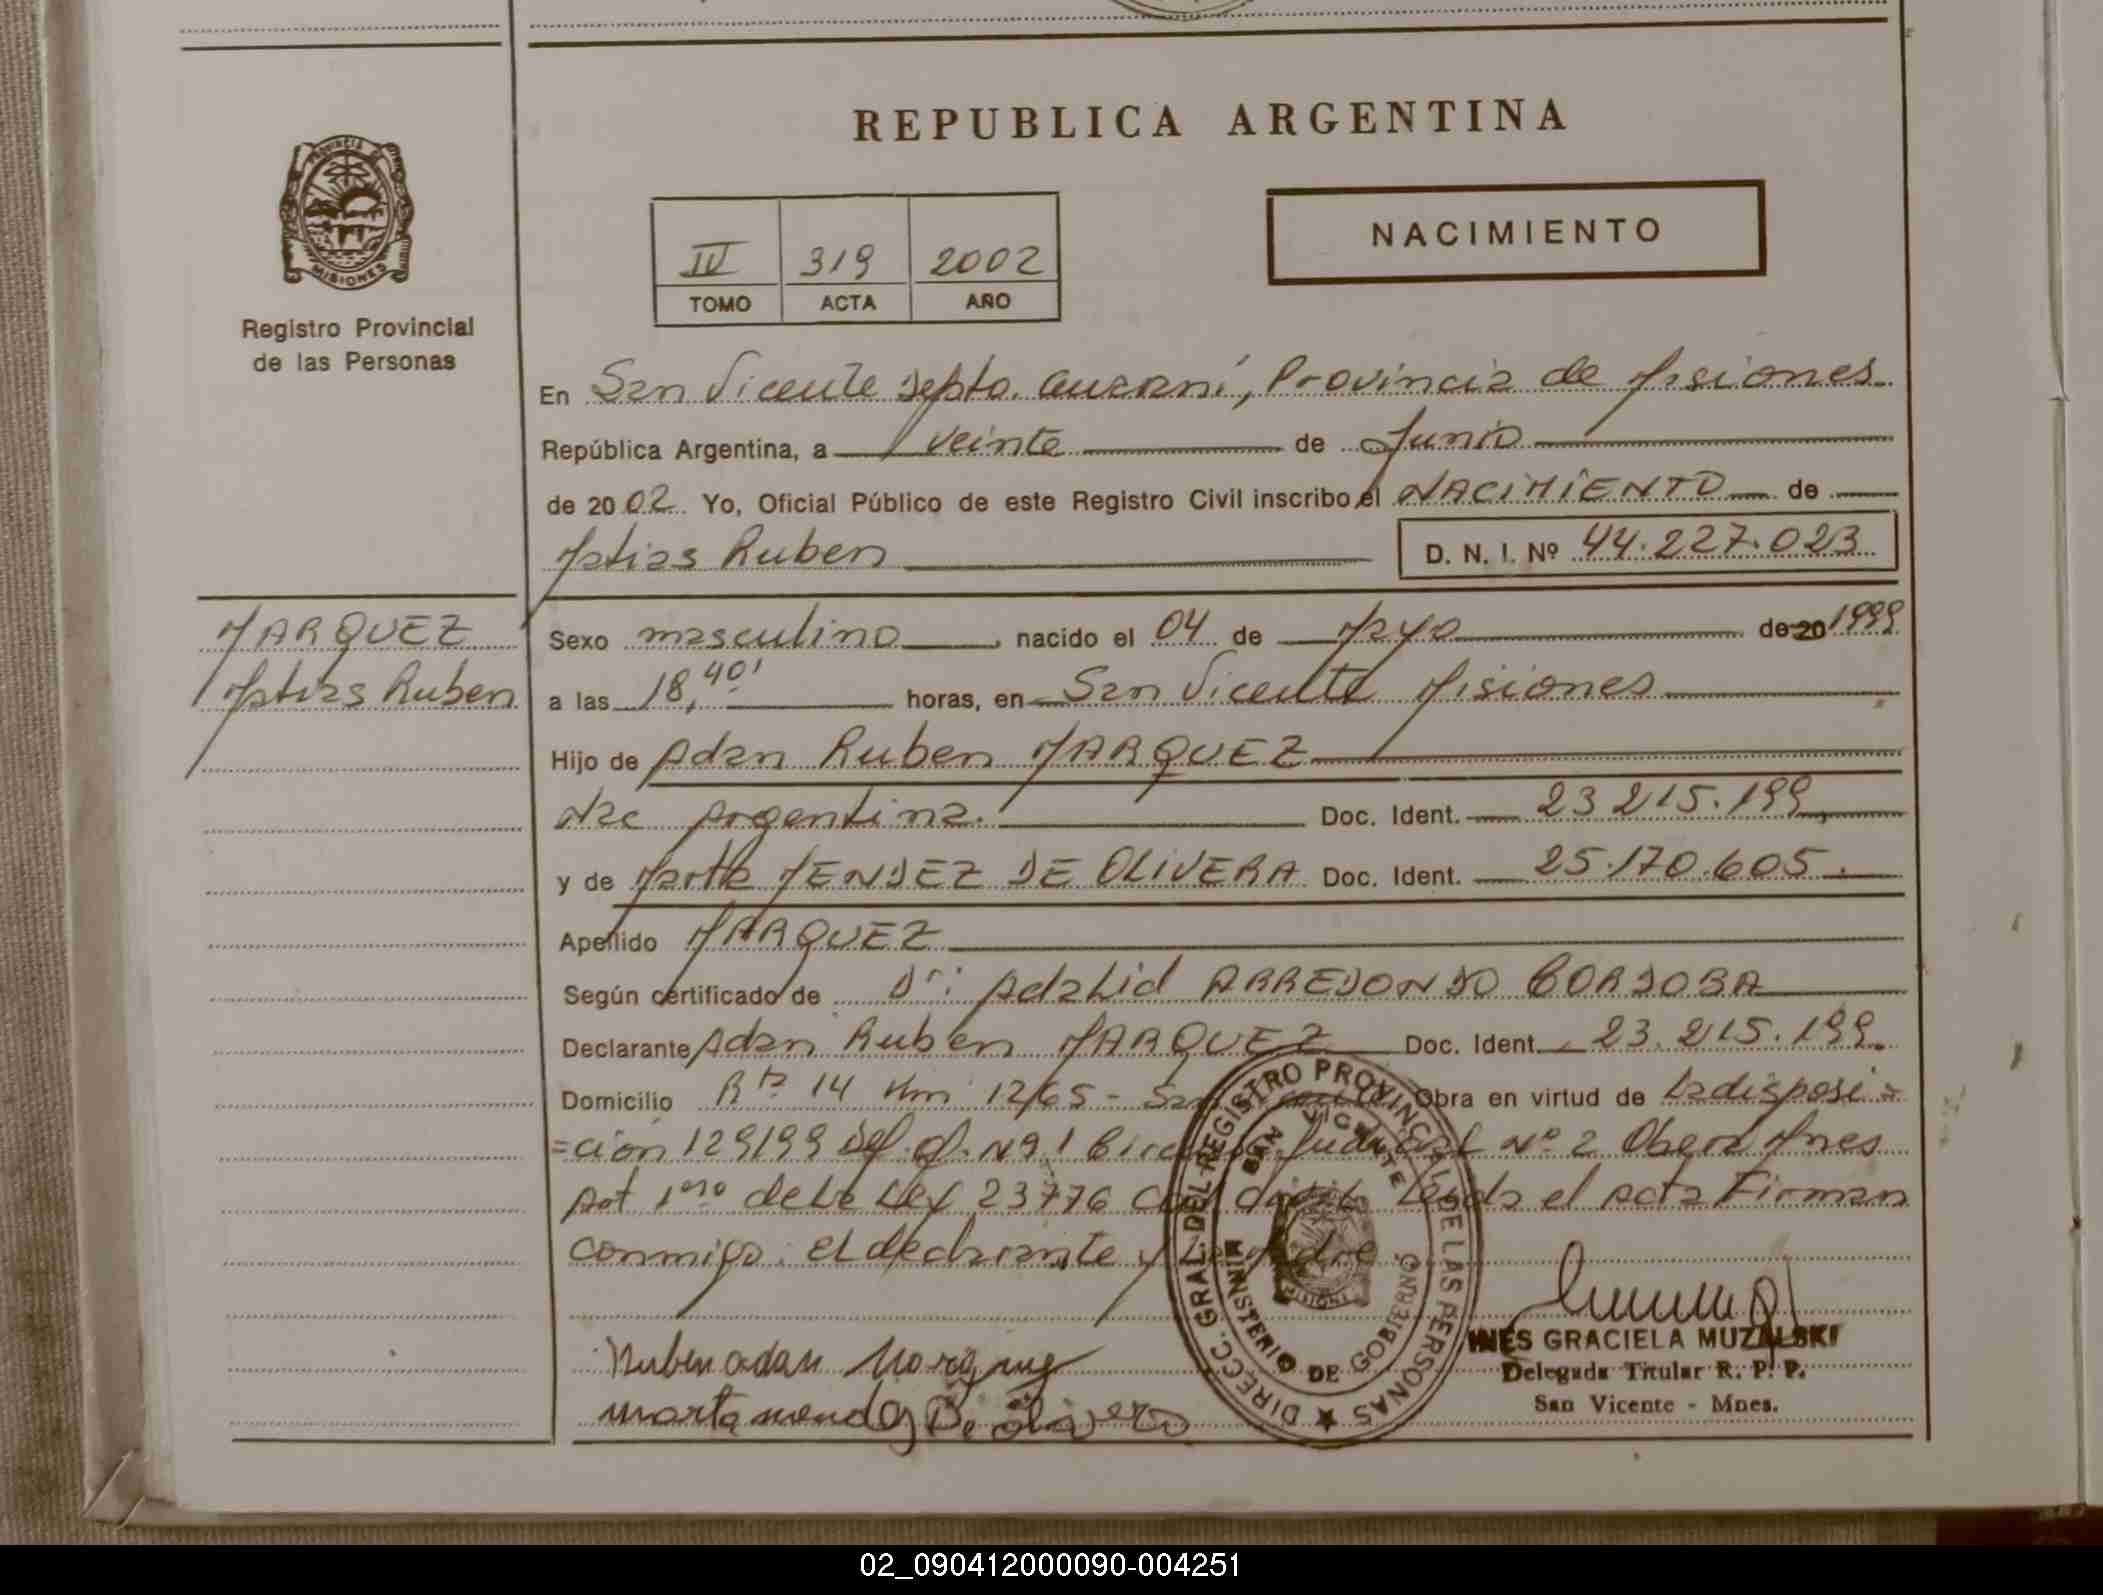 REPUBLICA ARGENTINA
PROVINCIA DE
MISIONES
Registro Provincial
de las Personas
NACIMIENTO
IV 319 2002
TOMO ACTA AÑO
En San Vicente Depto. Guaraní, Provincia de Misiones
República Argentina, a veinte de Junio
de 2002 Yo, Oficial Público de este Registro Civil inscribo el NACIMIENTO de
Matias Ruben D. N. I. Nº 44.227.023
MARQUEZ
Matias Ruben
Sexo masculino, nacido el 04 de Mayo de 20 1999
a las 18,40' horas, en San Vicente Misiones
Hijo de Adan Ruben MARQUEZ
Nac Argentina. Doc. Ident. 23 215.199
y de Marta MENDEZ DE OLIVERA Doc. Ident. 25.170.605.
Apellido MARQUEZ
Según certificado de Dr: Adalid ARREDONDO CORDOBA
Declarante Adan Ruben MARQUEZ Doc. Ident. 23.215.199.
Domicilio Rta 14 Km 1265 - San Obra en virtud de La disposi=
=ción 129199 Def. Of. Nº 1 Nº 2 Obera Mnes
Art 1ero de La Ley 23776 Leida el Acta Firman
conmigo. El declarante y La Madre
Ruben adan Marquez
marta mendez De olivera
DIRECC. GRAL. DEL REGISTRO PROVINCIAL DE LAS PERSONAS
SAN VICENTE
MINISTERIO DE GOBIERNO
MISIONES
INES GRACIELA MUZALSKI
Delegada Titular R. P. P.
San Vicente - Mnes.
02_090412000090-004251